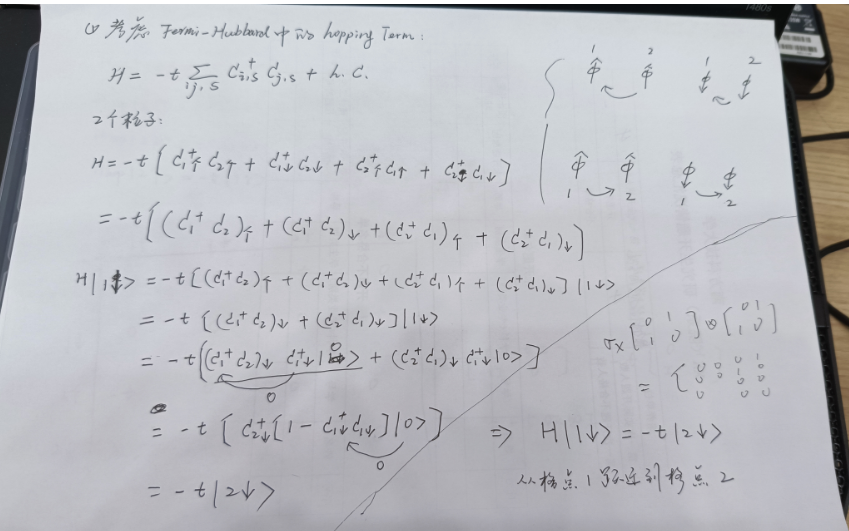 (1) 考虑 Fermi-Hubbard 中的 hopping Term:
H = -t ∑_{ij,s} C†_{i,s} C_{j,s} + h.c.
2个粒子:
H = -t [ C₁†↑ C₂↑ + C₁†↓ C₂↓ + C₂†↑ C₁↑ + C₂†↓ C₁↓ ]
= -t [ (C₁† C₂)↑ + (C₁† C₂)↓ + (C₂† C₁)↑ + (C₂† C₁)↓ ]
H|1↓> = -t [ (C₁† C₂)↑ + (C₁† C₂)↓ + (C₂† C₁)↑ + (C₂† C₁)↓ ] |1↓>
= -t [ (C₁† C₂)↓ + (C₂† C₁)↓ ] |1↓>
= -t [ (C₁† C₂)↓ C₁†↓ |0> + (C₂† C₁)↓ C₁†↓ |0> ]
0
= -t [ C₂†↓ [1 - C₁†↓ C₁↓] |0> ]
0
= -t |2↓>
1 2 1 2
1 2 1 2
σx [ 0 1
1 0 ] ⊗ [ 0 1
1 0 ]
= [ 0 0 0 1
0 0 1 0
0 0 0
⇒ H|1↓> = -t |2↓>
从格点1跃迁到格点2